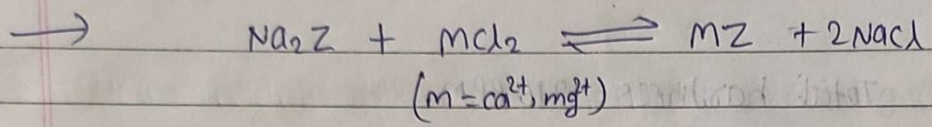 → Na2Z + MCl2 ⇌ MZ + 2NaCl
(M = Ca²⁺, Mg²⁺)